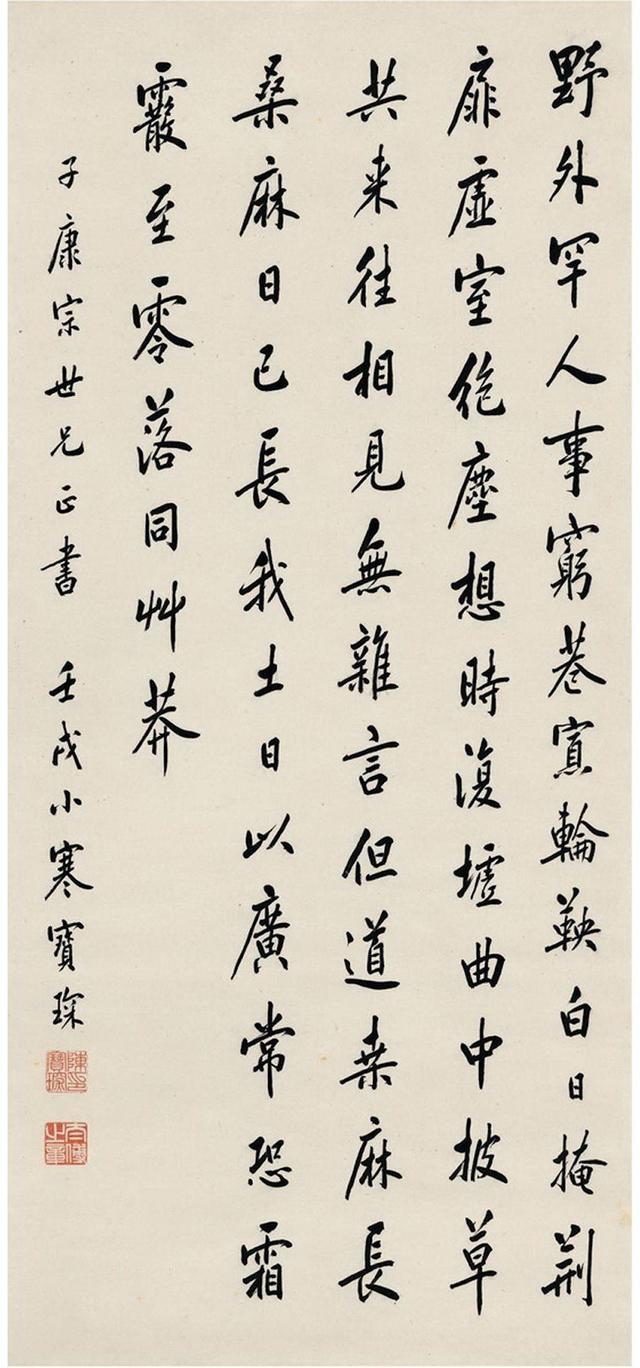 野外罕人事窮巷寡輪鞅白日掩荆
扉虛室絶塵想時復墟曲中披草
共来往相見無雜言但道桒麻長
桑麻日已長我土日以廣常恐霜
霰至零落同艸莽
子康宗世兄正書　壬戌小寒寶琛
陳寶琛印
太傅之章